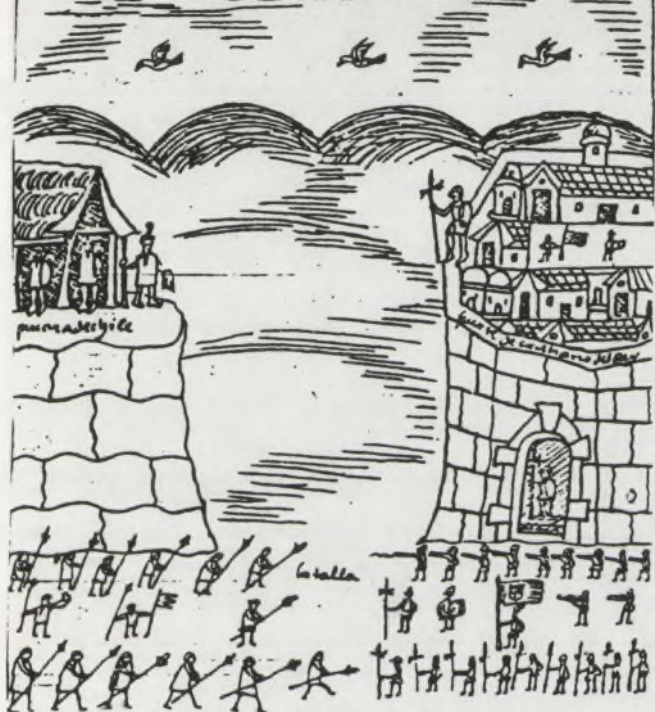 pucara de chile
fuerte de del rey
batalla